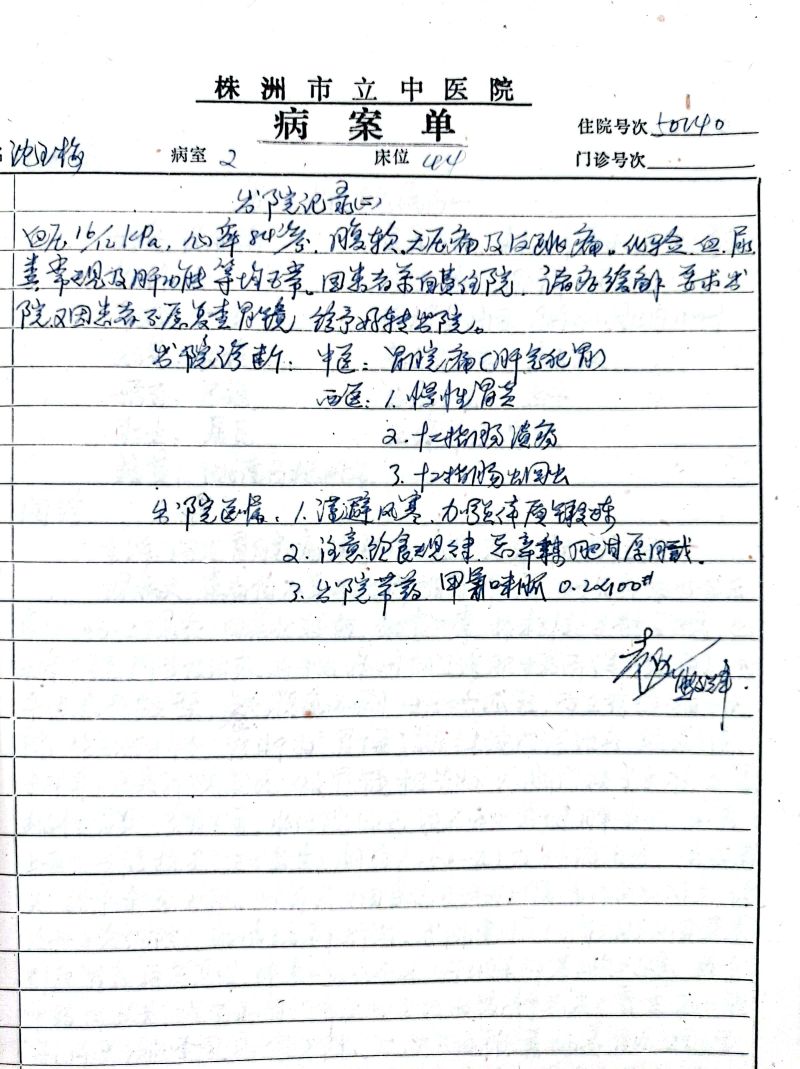 株洲市立中医院
病案单
住院号次 50240
沈玉梅 病室 2 床位 44 门诊号次
出院记录(二)
血压16/12KPa,心率84次/分,腹软,无压痛及反跳痛。化验血、尿
粪常规及肝功能等均正常。因患者系自费住院,诸症缓解,要求出
院,又因患者不愿复查胃镜,给予好转出院。
出院诊断:中医:胃脘痛(肝气犯胃)
西医:1.慢性胃炎
2.十二指肠溃疡
3.十二指肠出血
出院医嘱:1.谨避风寒,加强体质锻炼
2.注意饮食规律,忌辛辣肥甘厚腻。
3.出院带药 甲氰咪胍 0.2x100#